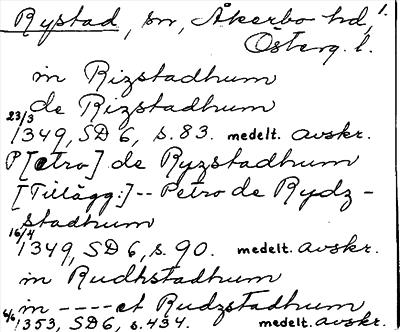 Rystad, sn, Åkerbo hd, 1.
Österg. l.
in Rizstadhum
de Rizstadhum
23/3 1349, SD 6, s. 83. medelt. avskr.
P[etro] de Ryzstadhum
[Tillägg:] -- Petro de Rydz-
stadhum
16/4 1349, SD 6, s. 90. medelt. avskr.
in Rudhstadhum
in ---- et Rudzstadhum
6/6 1353, SD 6, s. 434. medelt. avskr.